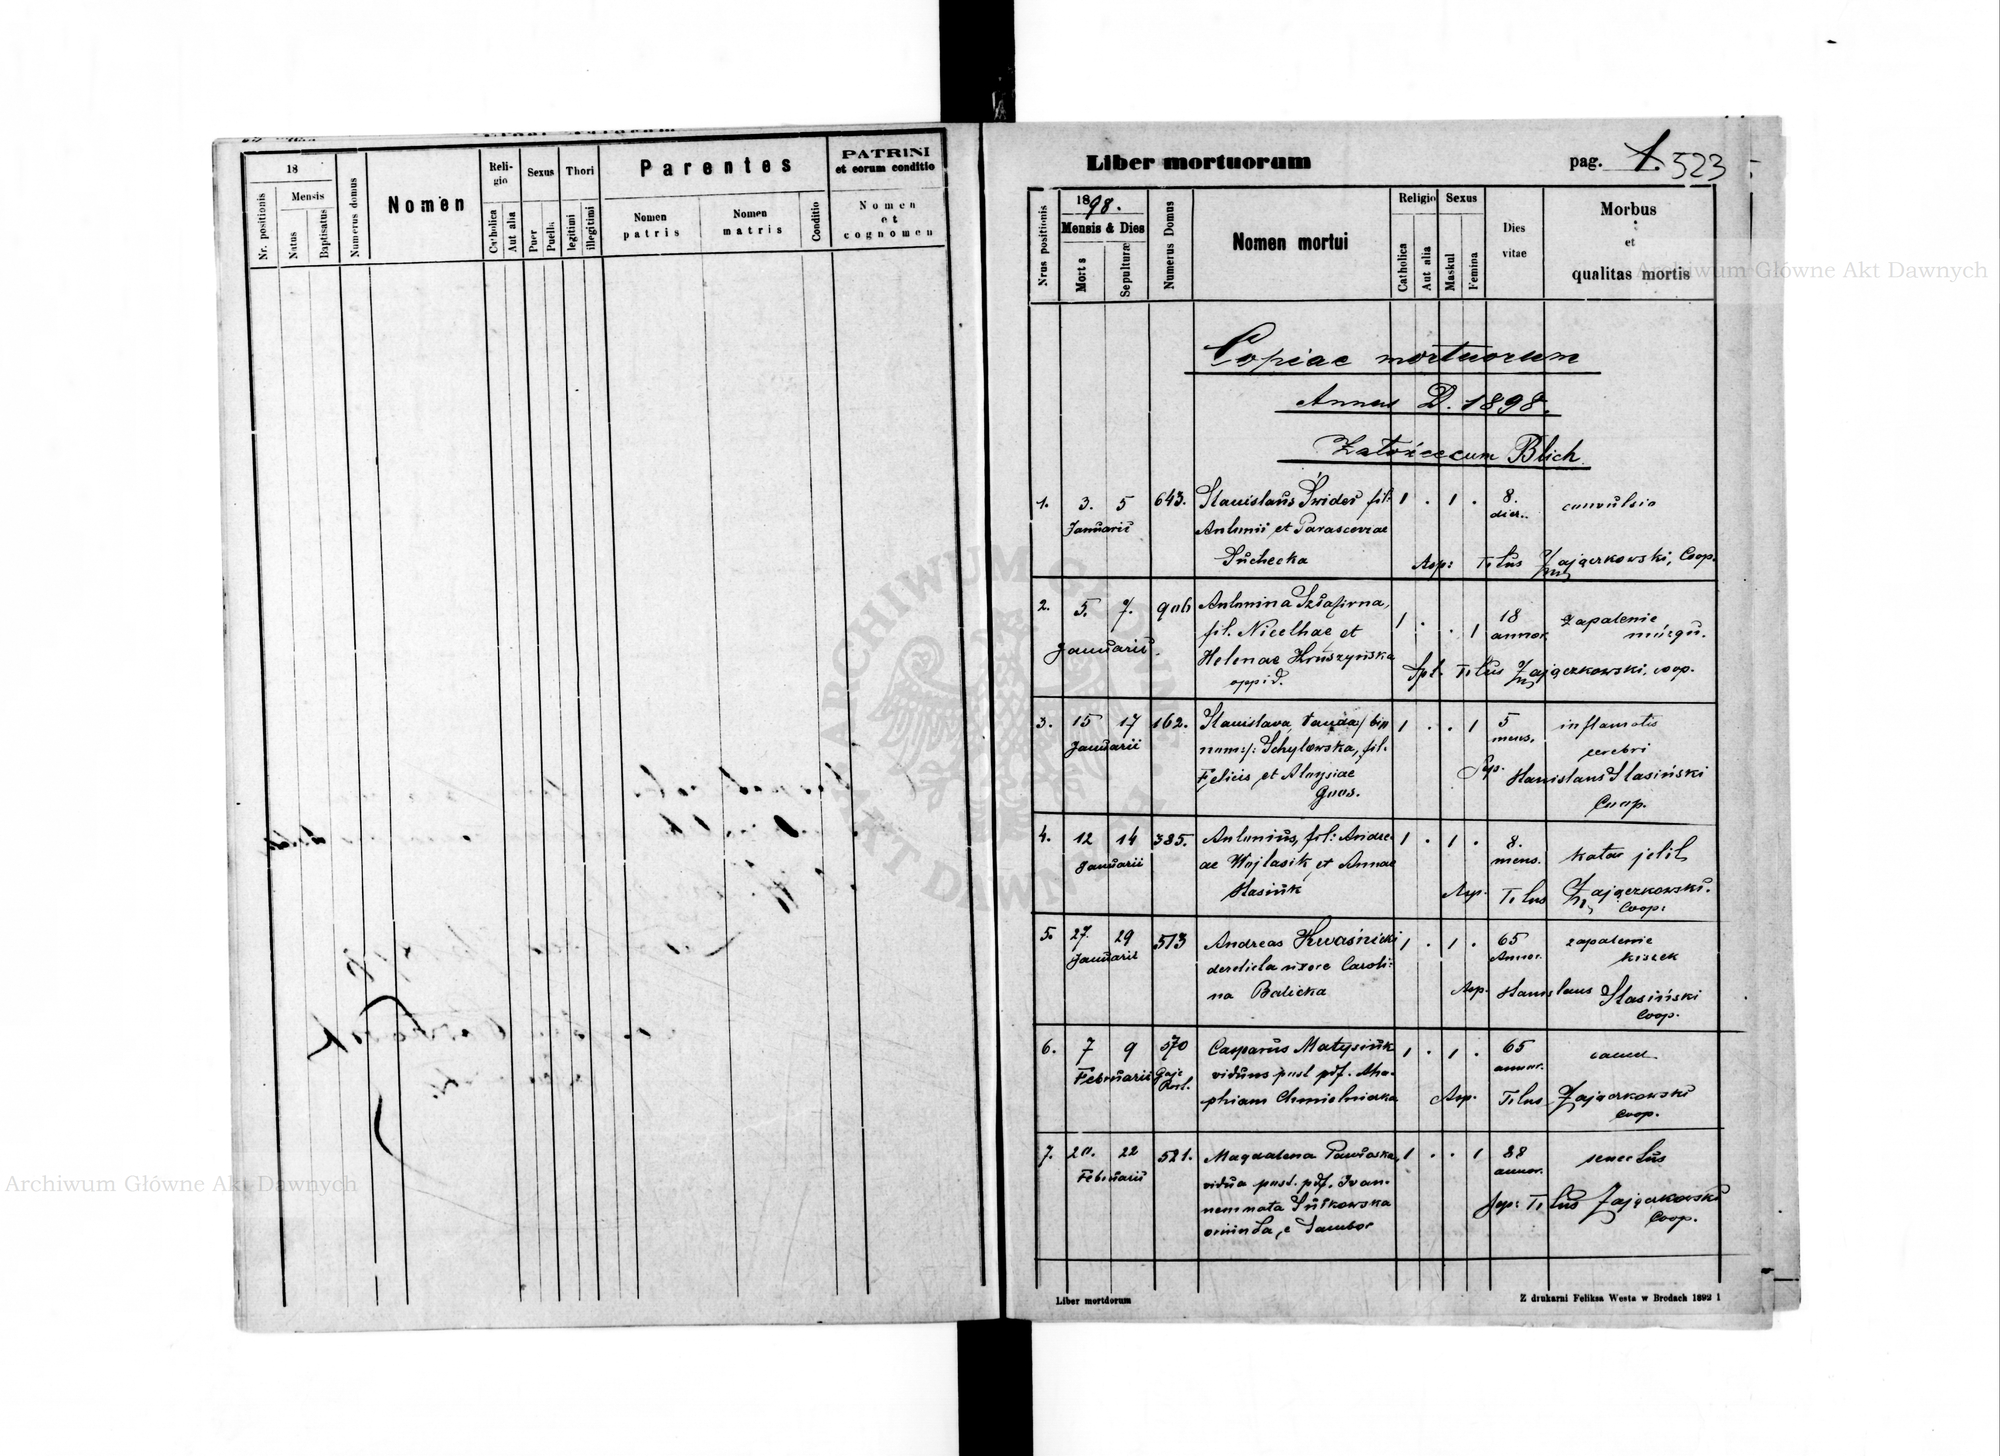 18
Nr. positionis
Mensis
Natus
Baptisatus
Numerus domus
Nomen
Religio
Catholica
Aut alia
Sexus
Puer
Puella
Thori
legitimi
illegitimi
Parentes
Nomen patris
Nomen matris
Conditio
PATRINI
et eorum conditio
Nomen
et
cognomen
Liber mortuorum
pag. 1. 523
Nrus positionis
1898.
Mensis & Dies
Mort s
Sepulturæ
Numerus Domus
Nomen mortui
Religio
Catholica
Aut alia
Sexus
Maskul
Femina
Dies
vitae
Morbus
et
qualitas mortis
Copiae mortuorum
Annus D. 1898.
Załoźcecum Blich
1. 3. 5 643. Stanislaus Świder fil: 1 . 1 . 8. convulsio
Januarii Antonii et Parascoviae dier.
Suchecka Asp: Titus Zajączkowski, Coop.
2. 5. 7. 906 Antonina
fil. et 1 . . 1 18 zapalenie
Januarii. Helenae Kruszyńska annor. mózgu.
oppid. Spt. Titus Zajączkowski, coop.
3. 15 17 162. Stanislava, Vanda /bin 1 . . 1 5 inflamatio
Januarii nom:/: Schylowska, fil. mens. cerebri
Felicis et Aloysiae Asp. Stanislaus Stasiński
Coop.
4. 12 14 385. Antonius, fil: Andre- 1 . 1 . 8. katar jelit
Januarii ae Wojtasik et Annae mens.
Stasiuk Asp. Titus Zajączkowski.
Coop:
5. 27. 29 513 Andreas Kwaśnicki 1 . 1 . 65 zapalenie
Januarii derelicta uxore Caroli- Annor. kiszek
na Balicka Asp. Stanislaus Stasiński
Coop.
6. 7 9 570 Casparus Matysiuk 1 . 1 . 65
Februarii Gaje viduus post pdf. Aha- annor.
Rozt. phiam Chmielniacka Asp. Titus Zajączkowski
Coop.
7. 20. 22 521. Magdalena 1 . . 1 88 senectus
Februarii vidua post. pdf. Ivan- annor.
nem nata Sułkowska Asp: Titus Zajączkowski
oriunda, e Sambor Coop.
Liber mortdorum
Z drukarni Feliksa Westa w Brodach 1892 1
ARCHIWUM GŁÓWNE AKT DAWNYCH
Archiwum Główne Akt Dawnych
Archiwum Główne Akt Dawnych